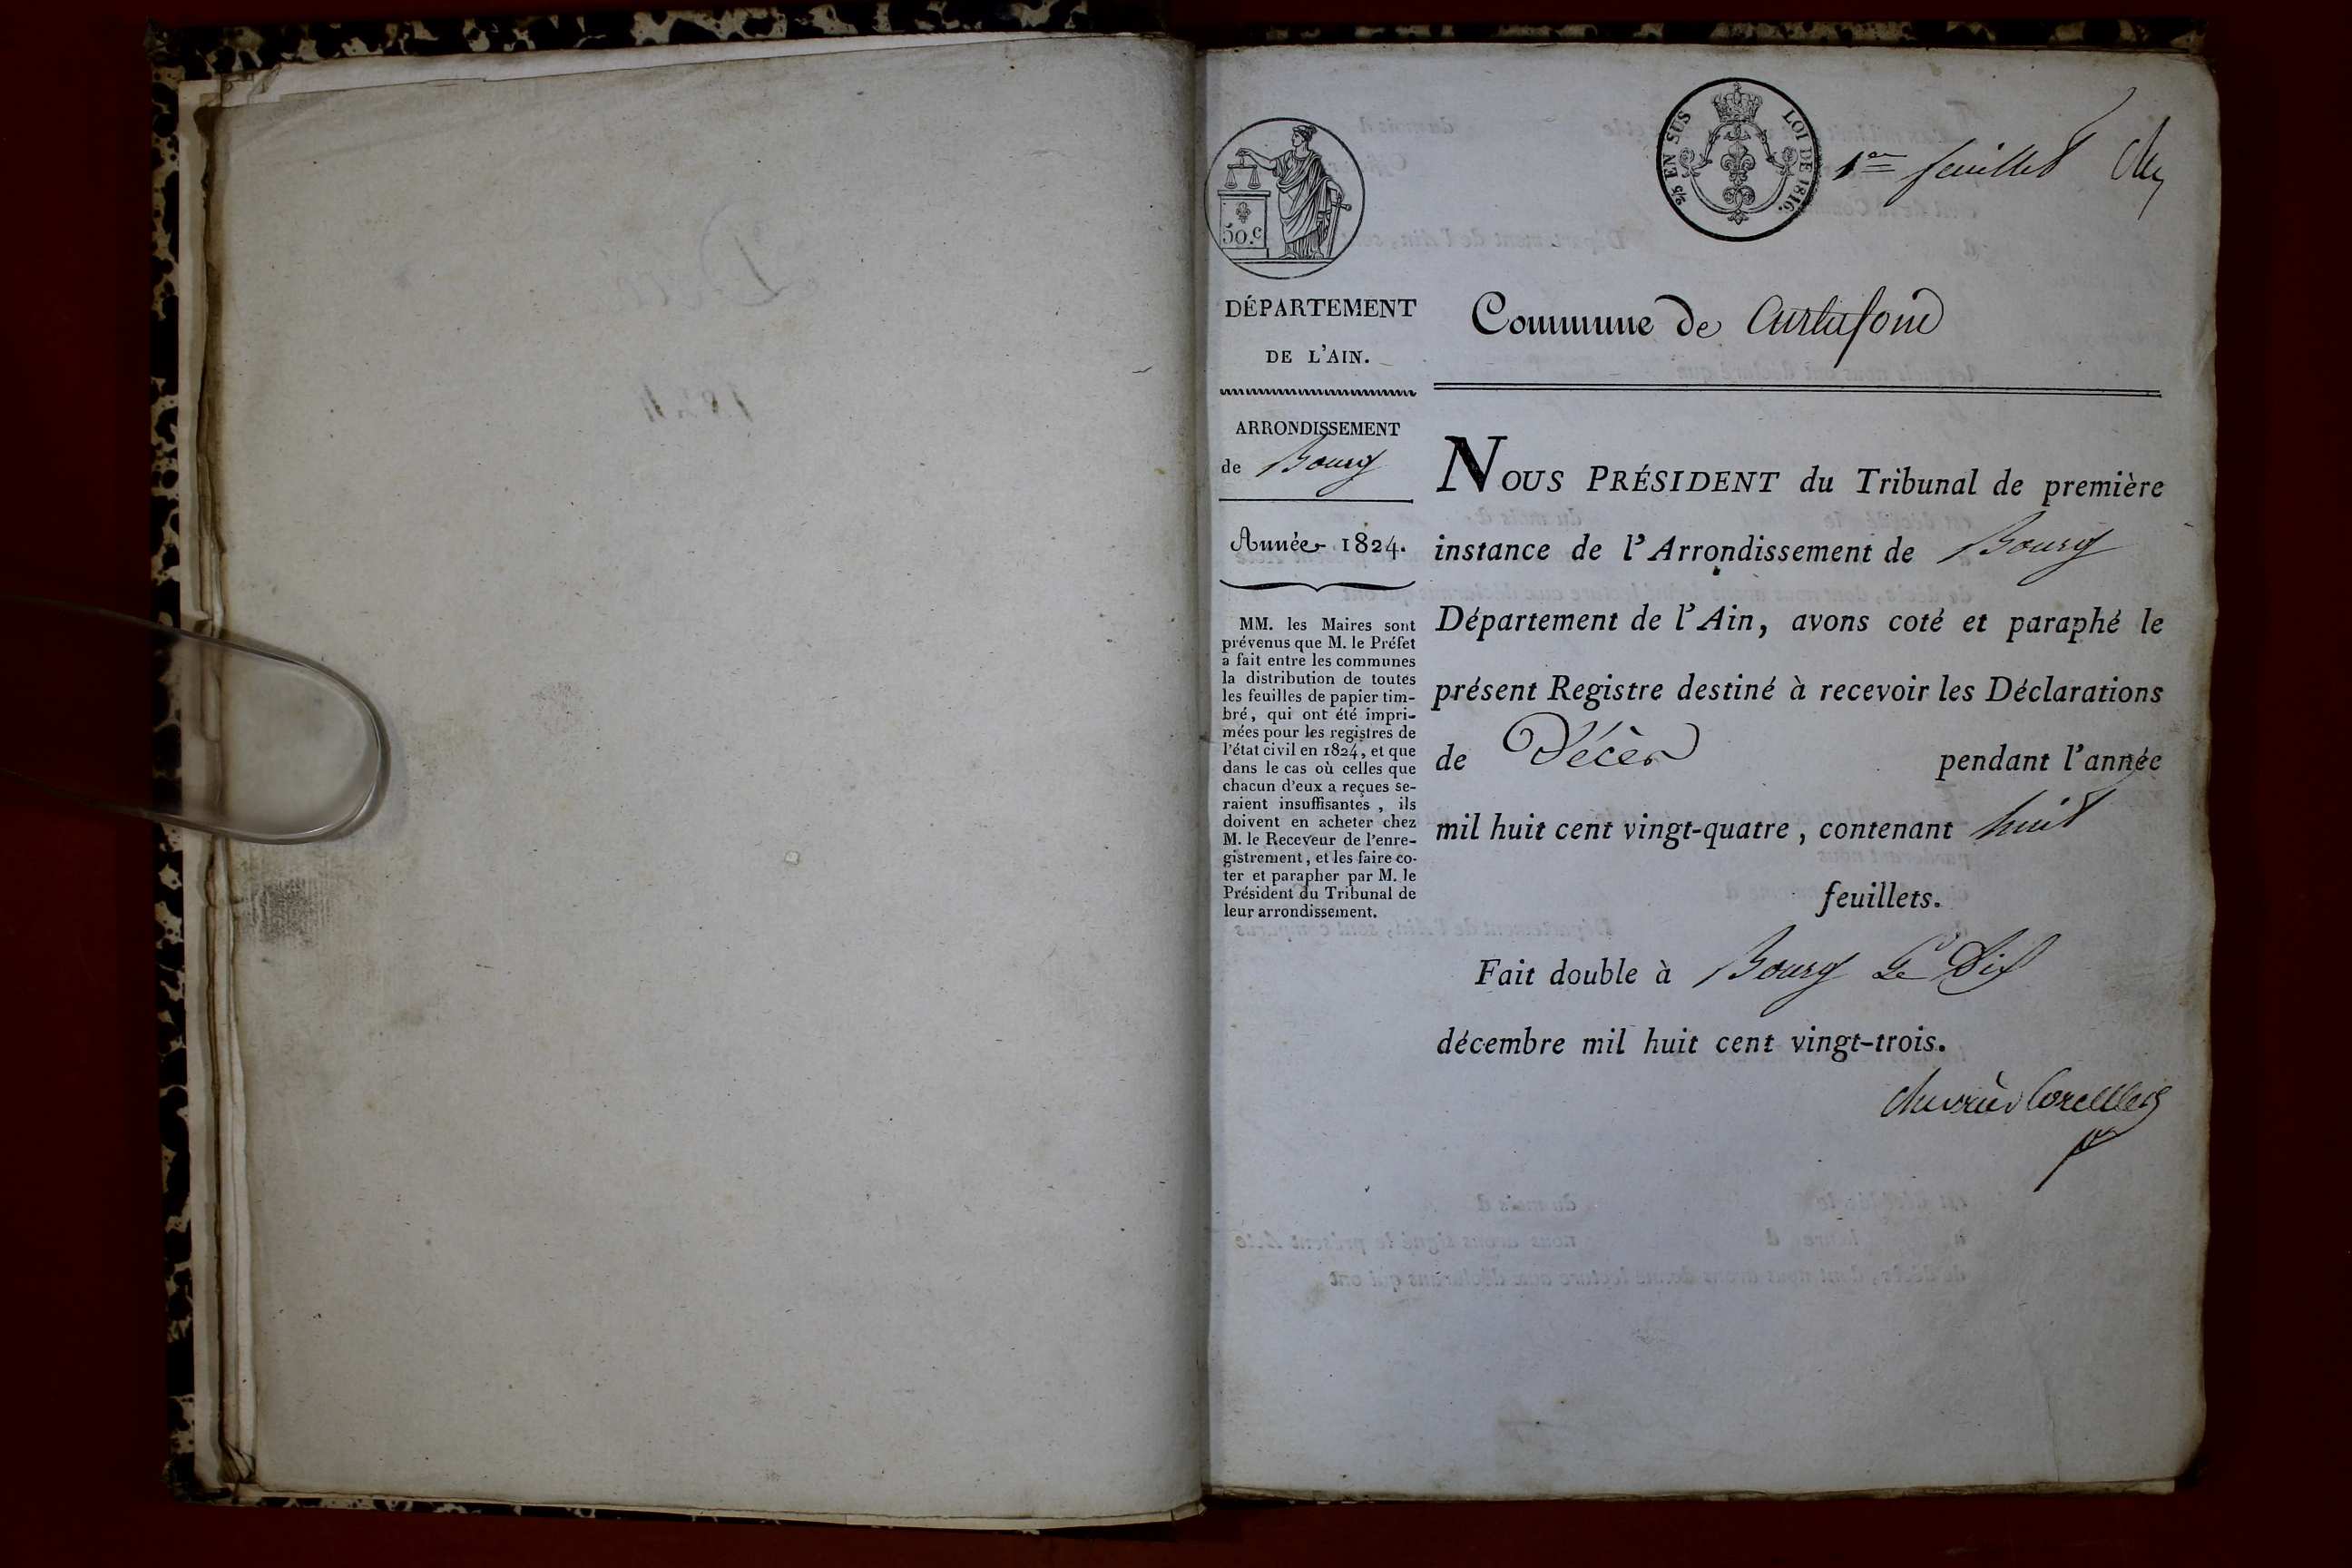 2/5 EN SUS LOI DE 1816.
1er feuillet
50.c
DÉPARTEMENT
DE L'AIN.
ARRONDISSEMENT
de Bourg
Année 1824.
MM. les Maires sont
prévenus que M. le Préfet
a fait entre les communes
la distribution de toutes
les feuilles de papier tim-
bré, qui ont été impri-
mées pour les registres de
l'état civil en 1824, et que
dans le cas où celles que
chacun d'eux a reçues se-
raient insuffisantes, ils
doivent en acheter chez
M. le Receveur de l'enre-
gistrement, et les faire co-
ter et parapher par M. le
Président du Tribunal de
leur arrondissement.
Commune de Curtafond
NOUS PRÉSIDENT du Tribunal de première
instance de l'Arrondissement de Bourg
Département de l'Ain, avons coté et paraphé le
présent Registre destiné à recevoir les Déclarations
de Décès pendant l'année
mil huit cent vingt-quatre, contenant huit
feuillets.
Fait double à Bourg Le Dix
décembre mil huit cent vingt-trois.